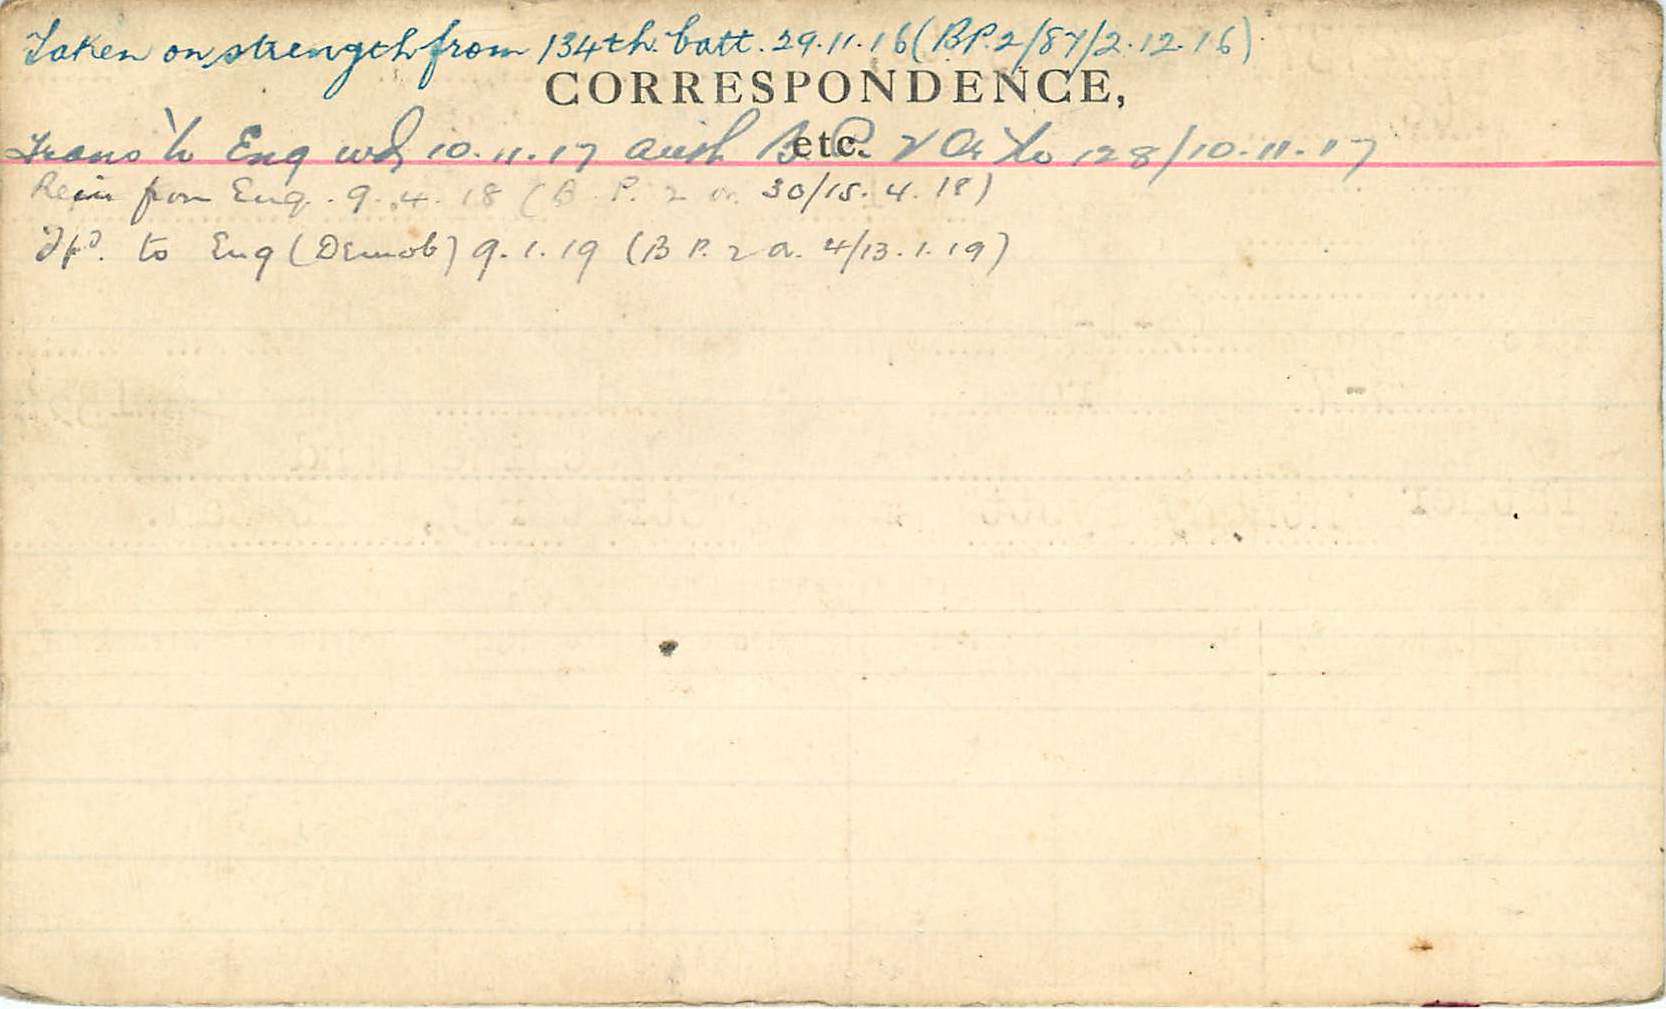 Taken on strength from 134th. batt. 29.11.16 (BP.2/87/2.12.16)
CORRESPONDENCE,
etc.
Trans to Eng wd 10.11.17 auth B.P. 2 Or No 128/10-11-17
Rein from Eng. 9.4.18 (B.P. 2 o. 30/15.4.18)
Tfd. to Eng (Demob) 9.1.19 (B P. 2 a. 4/13.1.19)